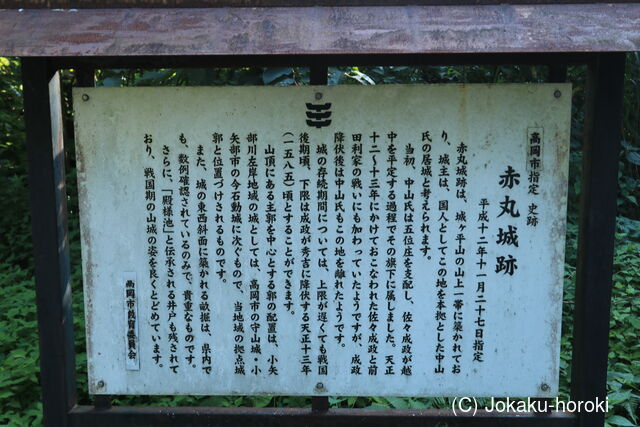 高岡市指定 史跡
赤丸城跡
平成十二年十一月二十七日指定
赤丸城跡は、城ヶ平山の山上一帯に築かれてお
り、城主は、国人としてこの地を本拠とした中山
氏の居城と考えられます。
当初、中山氏は五位庄を支配し、佐々成政が越
中を平定する過程でその旗下に属しました。天正
十二～十三年にかけておこなわれた佐々成政と前
田利家の戦いにも加わっていたようですが、成政
降伏後は中山氏もこの地を離れたようです。
城の存続期間については、上限が遅くても戦国
後期頃、下限は成政が秀吉に降伏する天正十三年
(一五八五)頃とすることができます。
山頂にある主郭を中心とする郭の配置は、小矢
部川左岸地域の城としては、高岡市の守山城・小
矢部市の今石動城に次ぐもので、当地域の拠点城
郭と位置づけされるものです。
また、城の東西斜面に築かれる畝堀は、県内で
も、数例確認されているのみで、貴重なものです。
さらに、「殿様池」と伝承される井戸も残されて
おり、戦国期の山城の姿を良くとどめています。
高岡市教育委員会
(C) Jokaku-horoki